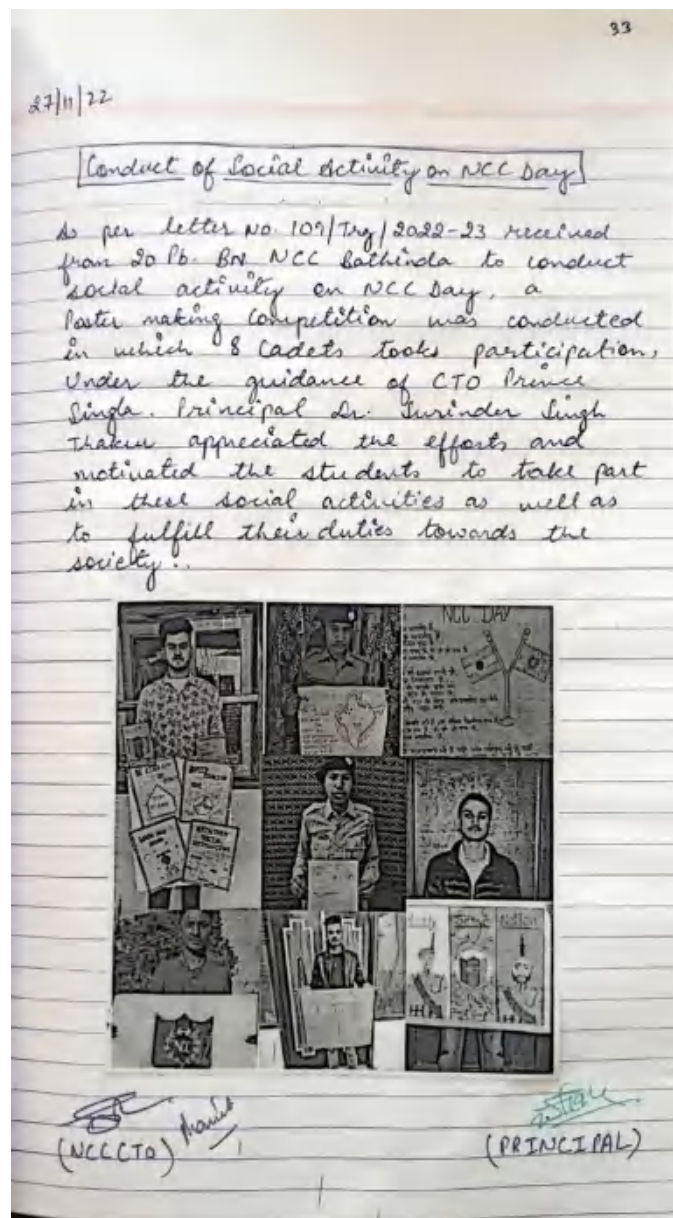 33
27/11/22
Conduct of Social Activity on NCC Day
As per letter No. 109/Trg/2022-23 received
from 20 Pb. BN NCC Bathinda to conduct
social activity on NCC Day, a
Poster making Competition was conducted
in which 8 Cadets tooks participation,
Under the guidance of CTO Prince
Singla. Principal Dr. Surinder Singh
Thakur appreciated the efforts and
motivated the students to take part
in these social activities as well as
to fulfill their duties towards the
society..
NCC DAY
NCC
(NCC CTO)
(PRINCIPAL)